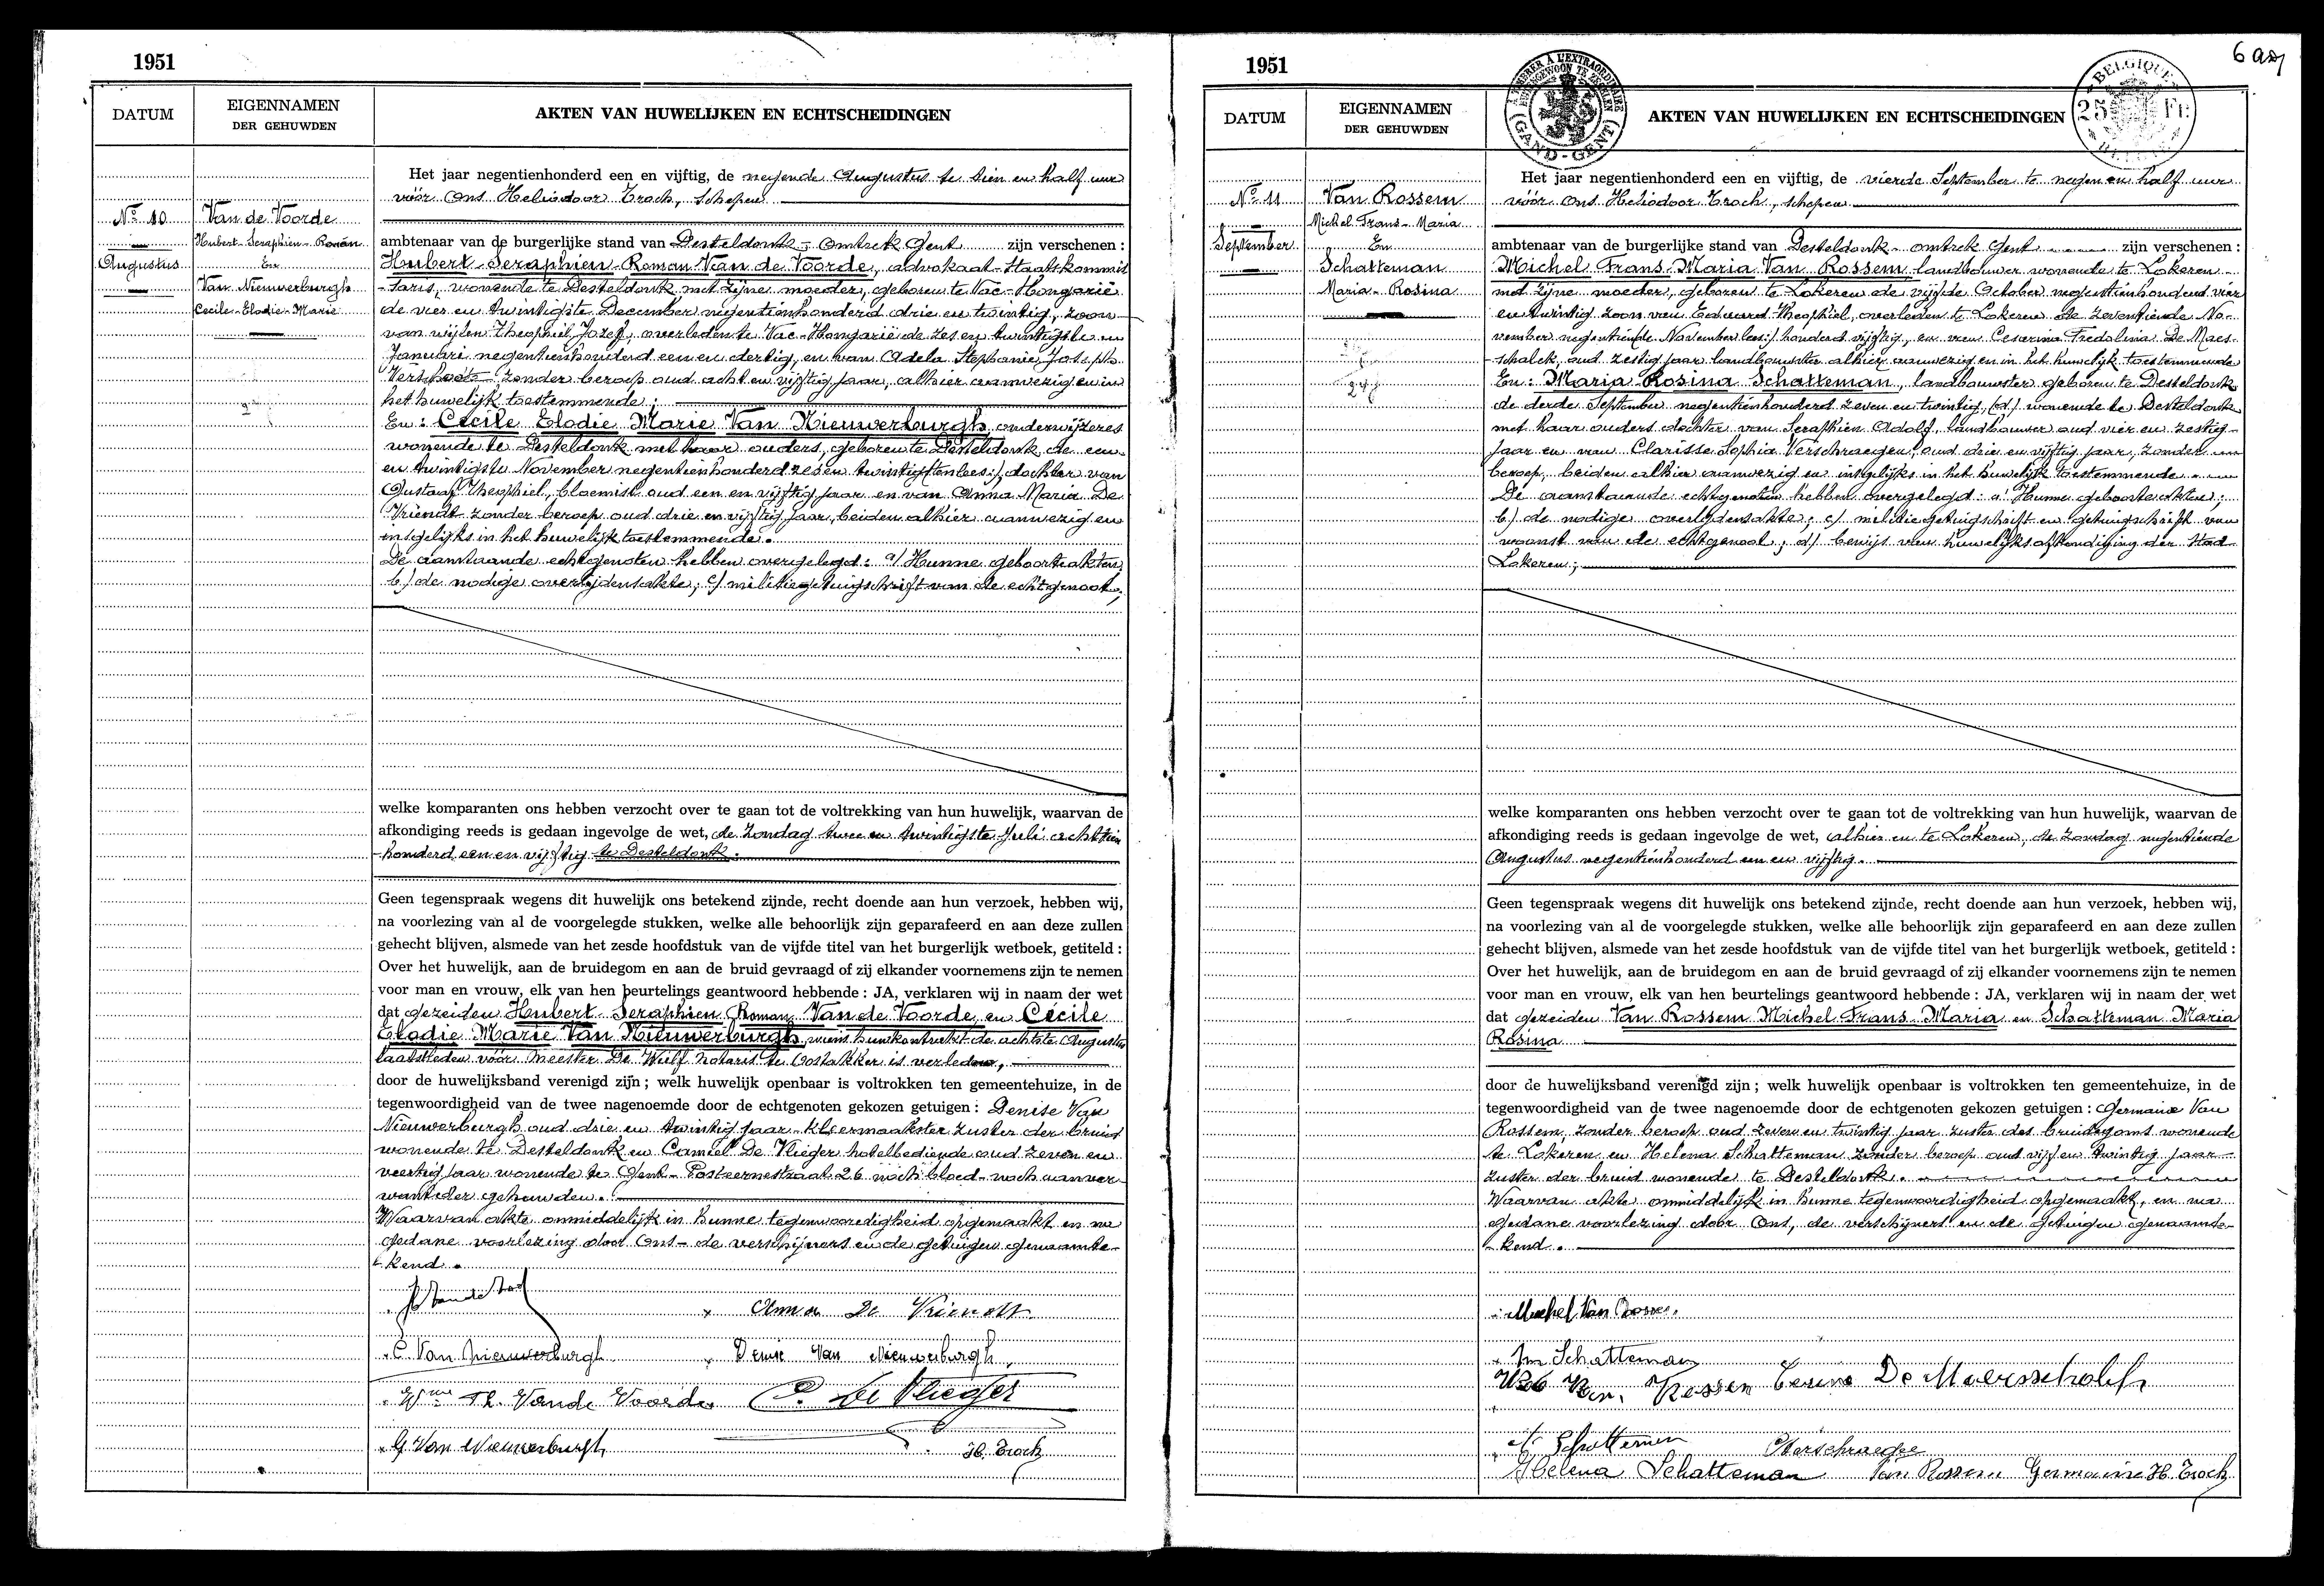 1951
DATUM
EIGENNAMEN
DER GEHUWDEN
AKTEN VAN HUWELIJKEN EN ECHTSCHEIDINGEN
Het jaar negentienhonderd een en vijftig, de negende Augustus te tien en half uur
vóór Ons Heliodoor Troch, schepen
No 10
Van de Voorde
Hubert-Seraphien-Roman
ambtenaar van de burgerlijke stand van Desteldonk - omtrek Gent zijn verschenen :
Augustus
En
Hubert-Seraphien-Roman Van de Voorde, advokaat-Staatskommis
Van Nieuwerburgh
-saris, wonende te Desteldonk met zijne moeder, geboren te Vac-Hongarië
Cecile-Elodie-Marie
de vier en twintigste December negentienhonderd drie en twintig, zoon
van wijlen Theophiel Jozef, overleden te Vac-Hongarië de zes en twintigste
Januari negentienhonderd een en dertig, en van Adela Stephanie Joseph
zonder beroep oud acht en vijftig jaar, alhier aanwezig en in
het huwelijk toestemmende;
En : Cecile Elodie Marie Van Nieuwerburgh, onderwijzeres
wonende te Desteldonk met haar ouders, geboren te Desteldonk de een
en twintigste November negentienhonderd zes en twintig dochter van
Gustaaf Theophiel, bloemist oud een en vijftig jaar en van Anna Maria De
Vriendt zonder beroep oud drie en vijftig jaar, beiden alhier aanwezig en
insgelijks in het huwelijk toestemmende.
De aanstaande echtgenoten hebben overgelegd : a/ Hunne geboorteakten;
b/ de nodige overlijdensakte; c/ militiegetuigschrift van de echtgenoot;
welke komparanten ons hebben verzocht over te gaan tot de voltrekking van hun huwelijk, waarvan de
afkondiging reeds is gedaan ingevolge de wet, de Zondag twee en twintigste Juli achttien
-honderd een en vijftig te Desteldonk.
Geen tegenspraak wegens dit huwelijk ons betekend zijnde, recht doende aan hun verzoek, hebben wij,
na voorlezing van al de voorgelegde stukken, welke alle behoorlijk zijn geparafeerd en aan deze zullen
gehecht blijven, alsmede van het zesde hoofdstuk van de vijfde titel van het burgerlijk wetboek, getiteld :
Over het huwelijk, aan de bruidegom en aan de bruid gevraagd of zij elkander voornemens zijn te nemen
voor man en vrouw, elk van hen beurtelings geantwoord hebbende : JA, verklaren wij in naam der wet
dat gezeiden Hubert Seraphien Roman Van de Voorde en Cécile
Elodie Marie Van Nieuwerburgh, wiens huwkontrakt de achtste Augustus
laatstleden vóór Meester De Wulf notaris te Oostakker is verleden,
door de huwelijksband verenigd zijn ; welk huwelijk openbaar is voltrokken ten gemeentehuize, in de
tegenwoordigheid van de twee nagenoemde door de echtgenoten gekozen getuigen : Denise Van
Nieuwerburgh oud drie en twintig jaar-kleermaakster zuster der bruid
wonende te Desteldonk en Camiel De Vlieger hotelbediende oud zeven en
veertig jaar wonende te Gent - Posteernestraat 26 noch bloed-noch aanver-
want der gehuwden.
Waarvan akte onmiddelijk in hunne tegenwoordigheid opgemaakt en na
gedane voorlezing door Ons - de verschijners en de getuigen genaamte-
kend.
Anna De Vriendt
C. Van Nieuwerburgh
Denise Van Nieuwerburgh
Wwe Th. Vande Voorde
C. De Vlieger
G Van Nieuwerburgh
H. Troch
1951
6
A L'EXTRAORDINAIRE
BUITENGEWOON TE ZEGELEN
(GAND-GENT)
BELGIQUE
25 Fr.
DATUM
EIGENNAMEN
DER GEHUWDEN
AKTEN VAN HUWELIJKEN EN ECHTSCHEIDINGEN
Het jaar negentienhonderd een en vijftig, de vierde September te negen en half uur
No 11
Van Rossem
vóór Ons Heliodoor Troch, schepen
Michel Frans-Maria
September
En
ambtenaar van de burgerlijke stand van Desteldonk - omtrek Gent zijn verschenen :
Schatteman
Michel Frans-Maria Van Rossem landbouwer wonende te Lokeren
Maria-Rosina
met zijne moeder, geboren te Lokeren de vijfde October negentienhonderd vier
en twintig zoon van Eduard Theophiel, overleden te Lokeren de zeventiende No-
vember negentiende November lees:/ honderd vijftig, en van Cesarina Fredolina De Maes-
schalck, oud zestig jaar landbouwster alhier aanwezig en in het huwelijk toestemmende
En : Maria Rosina Schatteman, landbouwster geboren te Desteldonk
de derde September negentienhonderd zeven en twintig, wonende te Desteldonk
met haar ouders dochter van Seraphien Adolf, landbouwer oud vier en zestig
jaar en van Clarisse Sophia Verschraegen, oud drie en vijftig jaar, zonder
beroep, beiden alhier aanwezig en insgelijks in het huwelijk toestemmende.
De aanstaande echtgenoten hebben overgelegd : a/ Hunne geboorteakten;
b/ de nodige overlijdensakte; c/ militiegetuigschrift en getuigschrift van
woonst van de echtgenoot; d/ bewijs van huwelijksafkondiging der Stad
Lokeren;
welke komparanten ons hebben verzocht over te gaan tot de voltrekking van hun huwelijk, waarvan de
afkondiging reeds is gedaan ingevolge de wet, alhier en te Lokeren, de zondag negentiende
Augustus negentienhonderd een en vijftig.
Geen tegenspraak wegens dit huwelijk ons betekend zijnde, recht doende aan hun verzoek, hebben wij,
na voorlezing van al de voorgelegde stukken, welke alle behoorlijk zijn geparafeerd en aan deze zullen
gehecht blijven, alsmede van het zesde hoofdstuk van de vijfde titel van het burgerlijk wetboek, getiteld :
Over het huwelijk, aan de bruidegom en aan de bruid gevraagd of zij elkander voornemens zijn te nemen
voor man en vrouw, elk van hen beurtelings geantwoord hebbende : JA, verklaren wij in naam der wet
dat gezeiden Van Rossem Michel Frans-Maria en Schatteman Maria
Rosina
door de huwelijksband verenigd zijn ; welk huwelijk openbaar is voltrokken ten gemeentehuize, in de
tegenwoordigheid van de twee nagenoemde door de echtgenoten gekozen getuigen : Germaine Van
Rossem, zonder beroep oud zeven en twintig jaar zuster des bruidegoms wonende
te Lokeren en Helena Schatteman zonder beroep oud vijf en twintig jaar
zuster der bruid wonende te Desteldonk.
Waarvan akte onmiddelijk in hunne tegenwoordigheid opgemaakt, en na
gedane voorlezing door Ons, de verschijners en de getuigen genaamte-
kend.
Michel Van Rossem
M Schatteman
Van Rossem De Maesschalck
Schatteman
Verschraegen
Helena Schatteman
Van Rossem Germaine
H. Troch